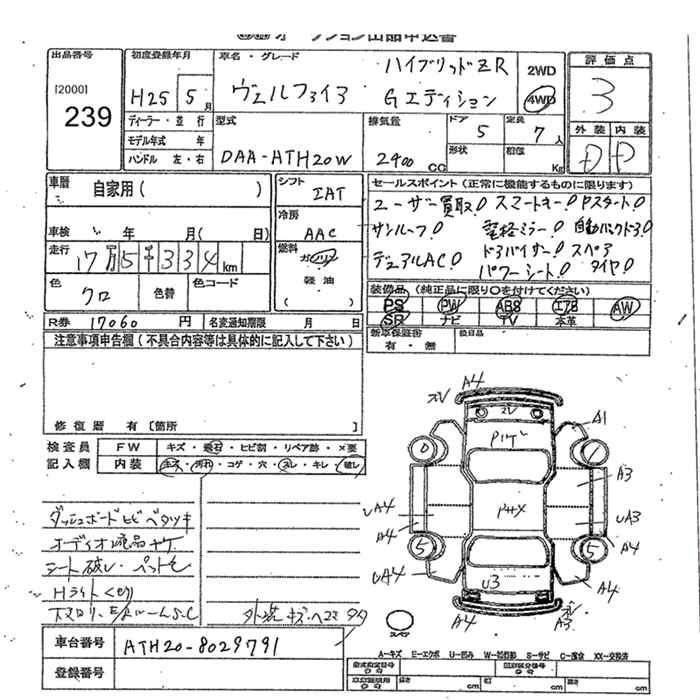 オークション出品申込書
出品番号 初度登録年月 車名・グレード ハイブリッドZR 2WD 評価点
[2000] H25 5月 ヴェルファイア Gエディション 4WD 3
239 ディーラー・並行 型式 排気量 ドア 5 定員 7人 外装 内装
モデル年式 年 形状 積載 Kg D D
ハンドル 左・右 DAA-ATH20W 2400cc
車歴 自家用( ) シフト IAT セールスポイント(正常に機能するものに限ります)
車検 年 月( 日) 冷房 AAC ユーザー買取! スマートキー! Pスタート!
走行 17万5千334km 燃料 ガソリン サンルーフ! 電格ミラー! 自動バックドア!
軽油 デュアルAC! ドアバイザー! スペアタイヤ!
パワーシート!
色 クロ 色替 色コード 装備品(純正品に限り○を付けてください)
PS PW ABS エアB AW
R券 17060円 名変通知期限 月 日 SR ナビ TV 本革
注意事項申告欄(不具合内容等は具体的に記入して下さい) 新車保証書 有・無 後日品
修復歴 有 [箇所 ]
検査員 FW キズ・飛石・ヒビ割・リペア跡・×要
記入欄 内装 キズ・汚れ・コゲ・穴・スレ・キレ・破レ
ダッシュボードヒビベタツキ
オーディオ液晶キズ
シート破レ・ペット毛
Hライトくもり
外装キズ・ヘコミ タタ
A4
ズV ズV
A1
A3
UA4 UA3
A4 A4
5 5
UA4 U3 A4
A4 A3
スペア
車台番号 ATH20-8029791
登録番号
A-キズ E-エクボ U-凹み W-凹修跡 S-サビ C-腐食 XX-交換済
型式指定番号 類別区分番号
cm cm cm